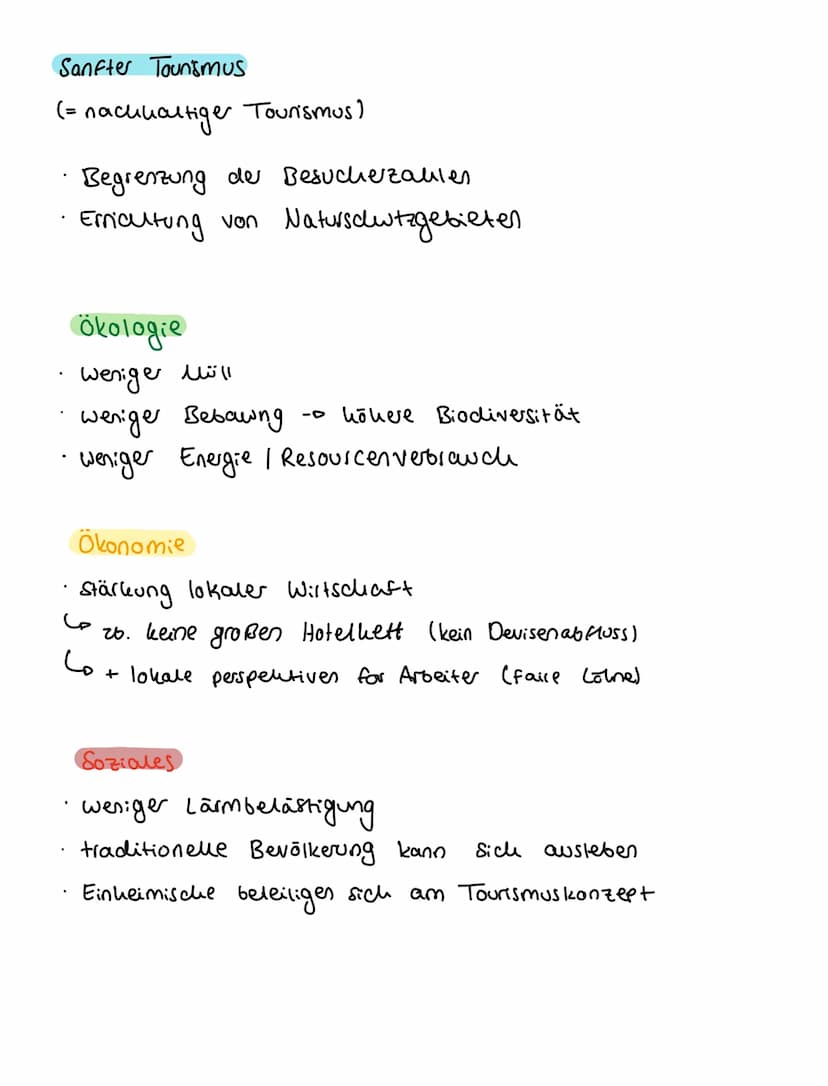 Sanfter Tourismus
(= nachhaltiger Tourismus)
· Begrenzung der Besucherzahlen
· Errichtung von Naturschutzgebieten
Ökologie
· weniger Müll
· weniger Bebauung → höhere Biodiversität
· weniger Energie / Resourcenverbrauch
Ökonomie
· Stärkung lokaler Wirtschaft
↳ zb. keine großen Hotelkett (kein Devisenabfluss)
↳ + lokale perspektiven für Arbeiter (faire Löhne)
Soziales
· weniger Lärmbelästigung
· traditionelle Bevölkerung kann sich ausleben
· Einheimische beteiligen sich am Tourismuskonzept